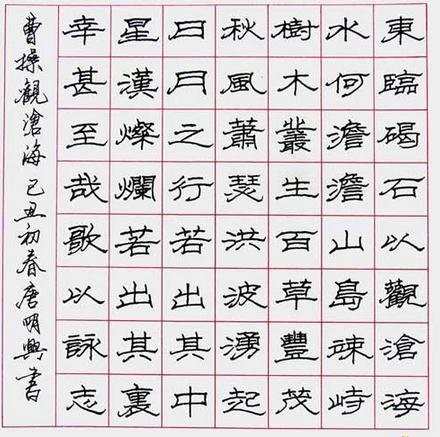 東臨碣石以觀滄海
水何澹澹山島竦峙
樹木叢生百草豐茂
秋風蕭瑟洪波湧起
日月之行若出其中
星漢燦爛若出其裏
幸甚至哉歌以詠志
曹操觀滄海己丑初春唐明興書